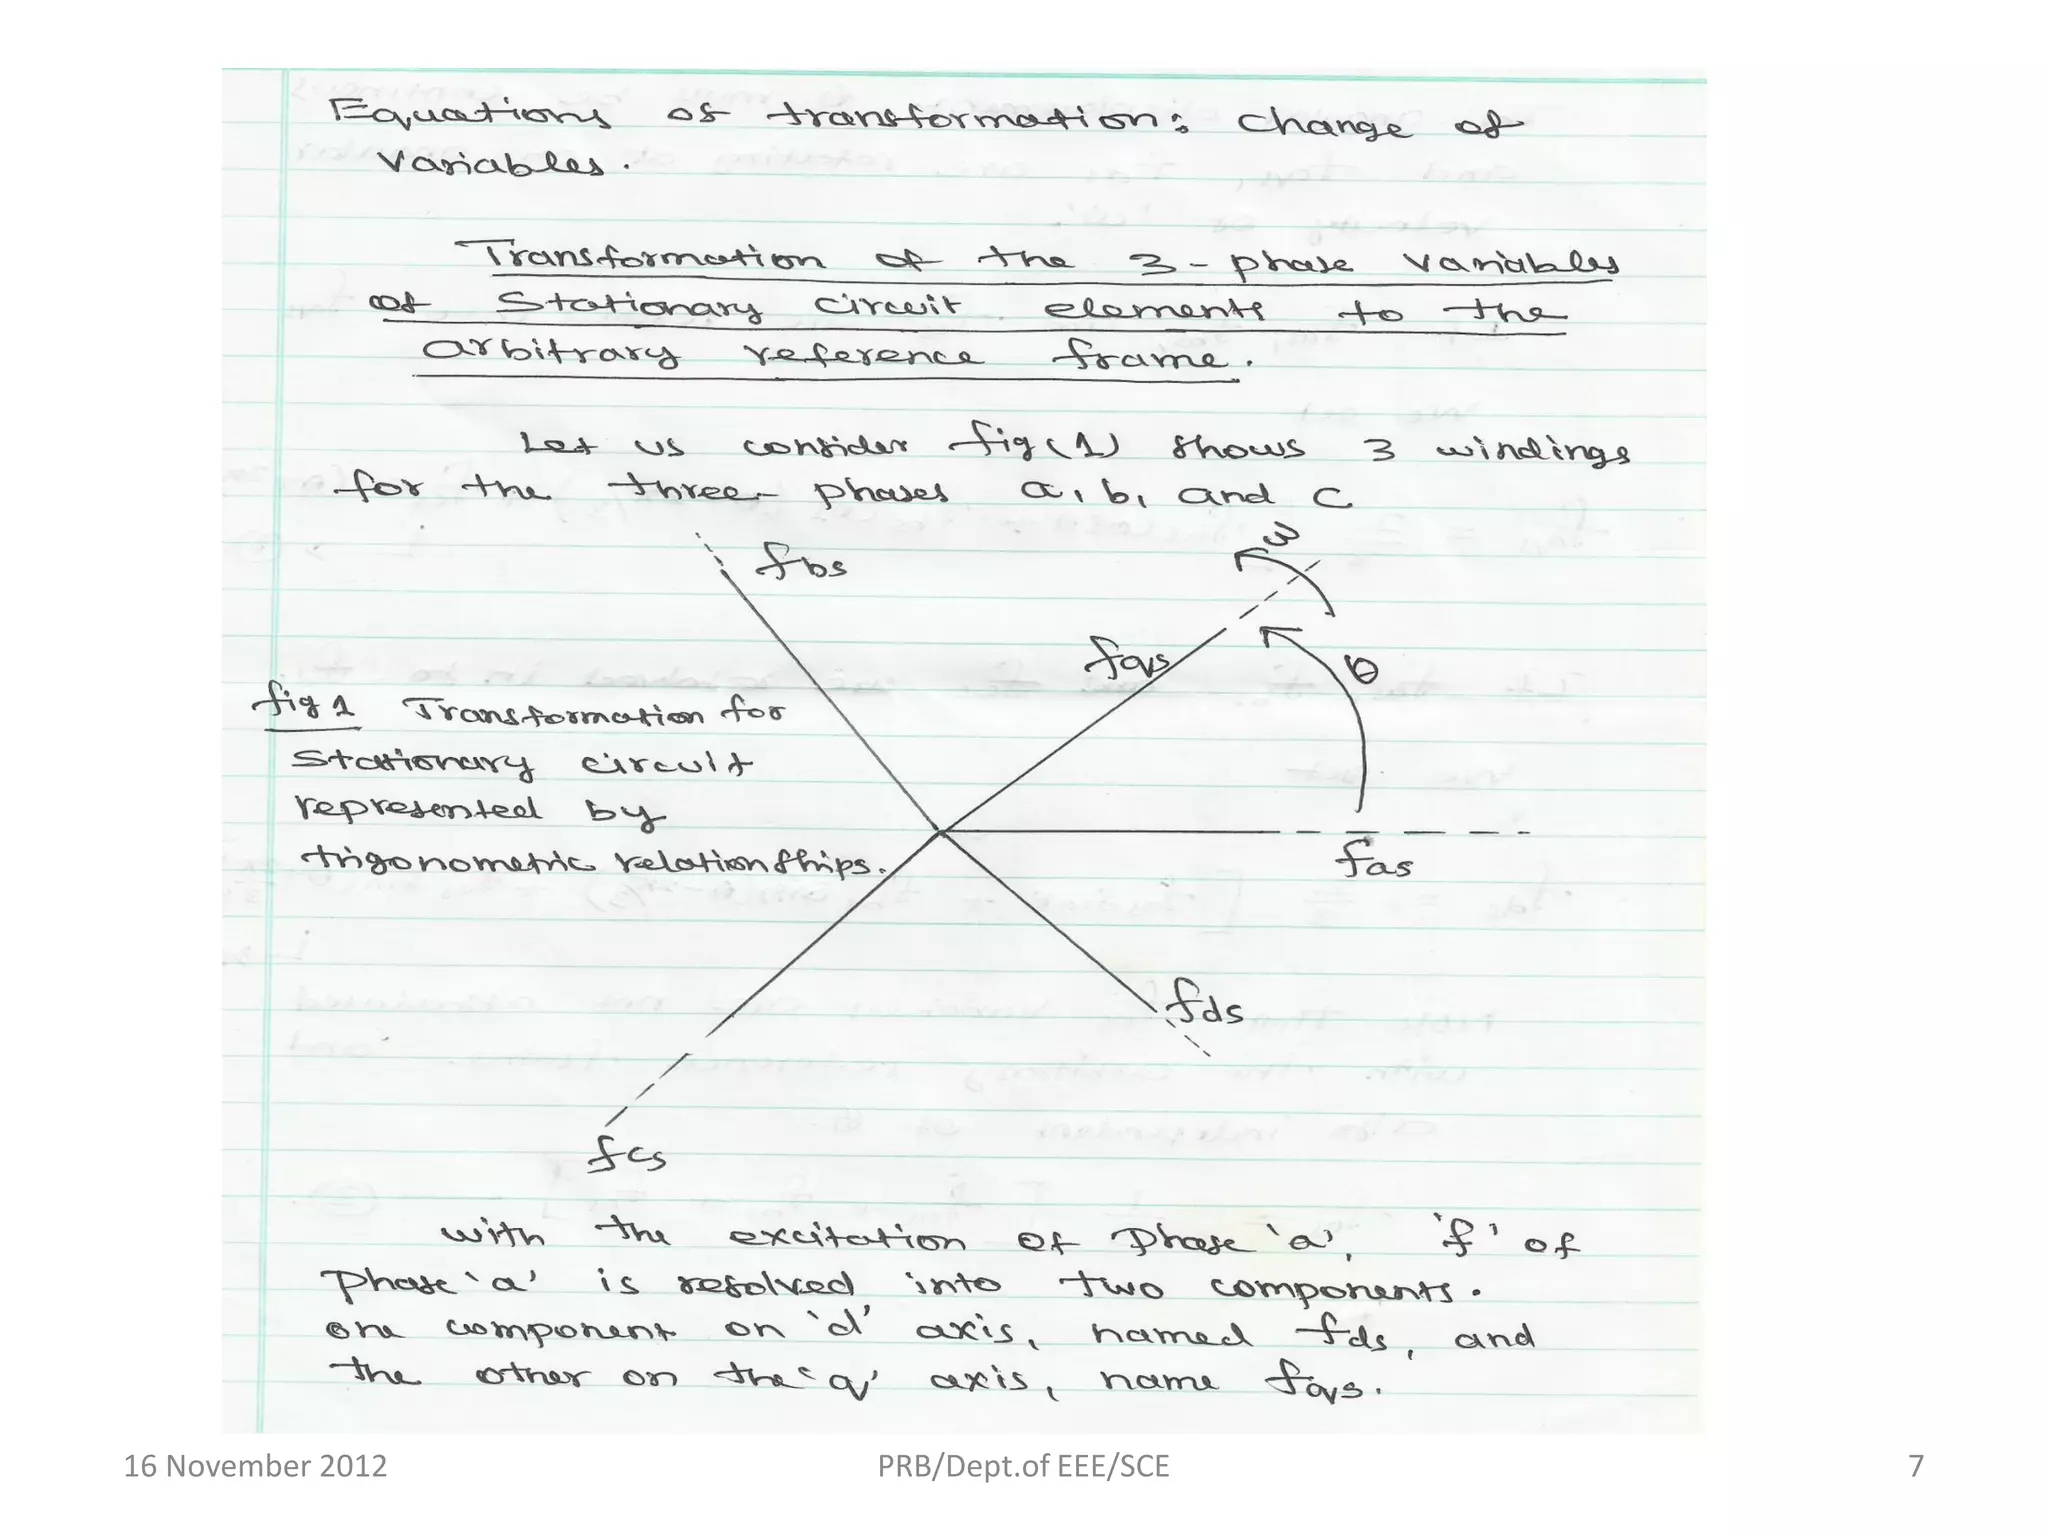 Equations of transformation: change of
variables.
Transformation of the 3-phase variables
of stationary circuit elements to the
arbitrary reference frame.
Let us consider fig (1) shows 3 windings
for the three-phases a, b, and c
ω
fbs
fqs
θ
fig 1 Transformation for
stationary circuit
represented by
trigonometric relationships.
fas
fds
fcs
with the excitation of phase 'a', 'f' of
phase 'a' is resolved into two components.
one component on 'd' axis, named fds, and
the other on the 'q' axis, name fqs.
16 November 2012 PRB/Dept.of EEE/SCE 7